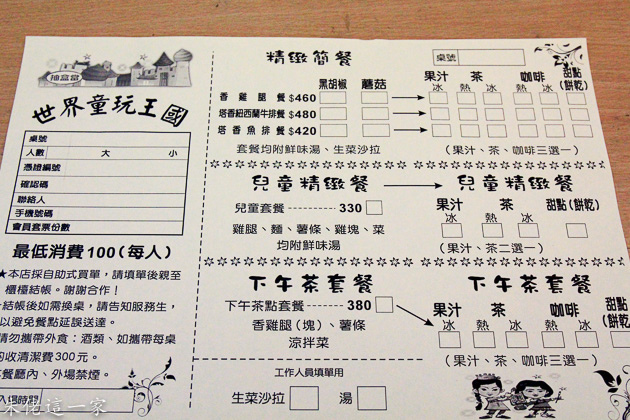 抽盒當
世界童玩王國
桌號
人數 大 小
憑證編號
確認碼
聯絡人
手機號碼
會員套票份數
最低消費100(每人)
★本店採自助式買單，請填單後親至
櫃檯結帳。謝謝合作！
結帳後如需換桌，請告知服務生，
以避免餐點延誤送達。
請勿攜帶外食：酒類、如攜帶每桌
酌收清潔費300元。
餐廳內、外場禁煙。
入場時間
精緻簡餐
桌號
黑胡椒 蘑菇
果汁 茶 咖啡 甜點(餅乾)
冰 熱 冰 熱 冰
香雞腿餐$460
塔香紐西蘭牛排餐$480
塔香魚排餐$420
套餐均附鮮味湯、生菜沙拉
(果汁、茶、咖啡三選一)
兒童精緻餐
兒童精緻餐
兒童套餐 330
雞腿、麵、薯條、雞塊、菜
均附鮮味湯
果汁 茶 甜點(餅乾)
冰 熱 冰
(果汁、茶二選一)
下午茶套餐
下午茶套餐
下午茶點套餐 380
香雞腿(塊)、薯條
涼拌菜
果汁 茶 咖啡 甜點(餅乾)
冰 熱 冰 熱 冰
(果汁、茶、咖啡三選一)
工作人員填單用
生菜沙拉 湯
這一家